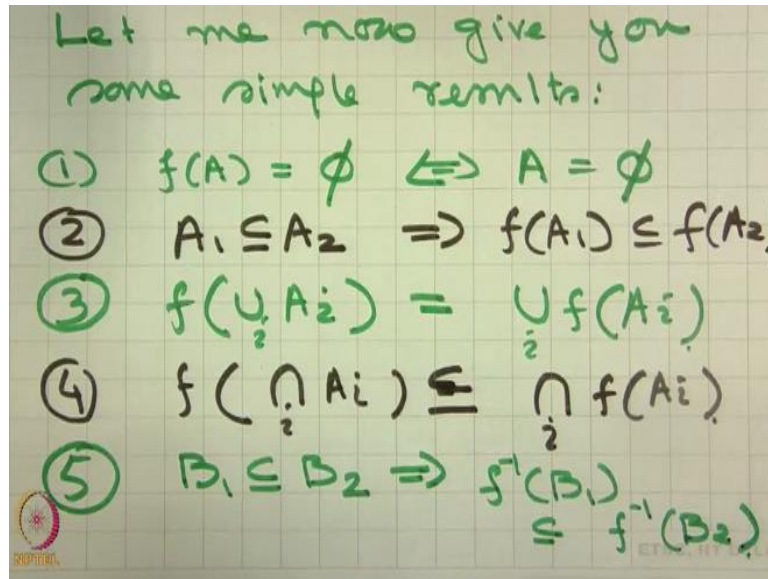 Let me now give you
some simple results:
① f(A) = ϕ ⇔ A = ϕ
② A₁ ⊆ A₂ ⇒ f(A₁) ⊆ f(A₂
③ f(∪ᵢ Aᵢ) = ∪ᵢ f(Aᵢ)
④ f(∩ᵢ Aᵢ) ⊆ ∩ᵢ f(Aᵢ)
⑤ B₁ ⊆ B₂ ⇒ f⁻¹(B₁)
⊆ f⁻¹(B₂)
NPTEL